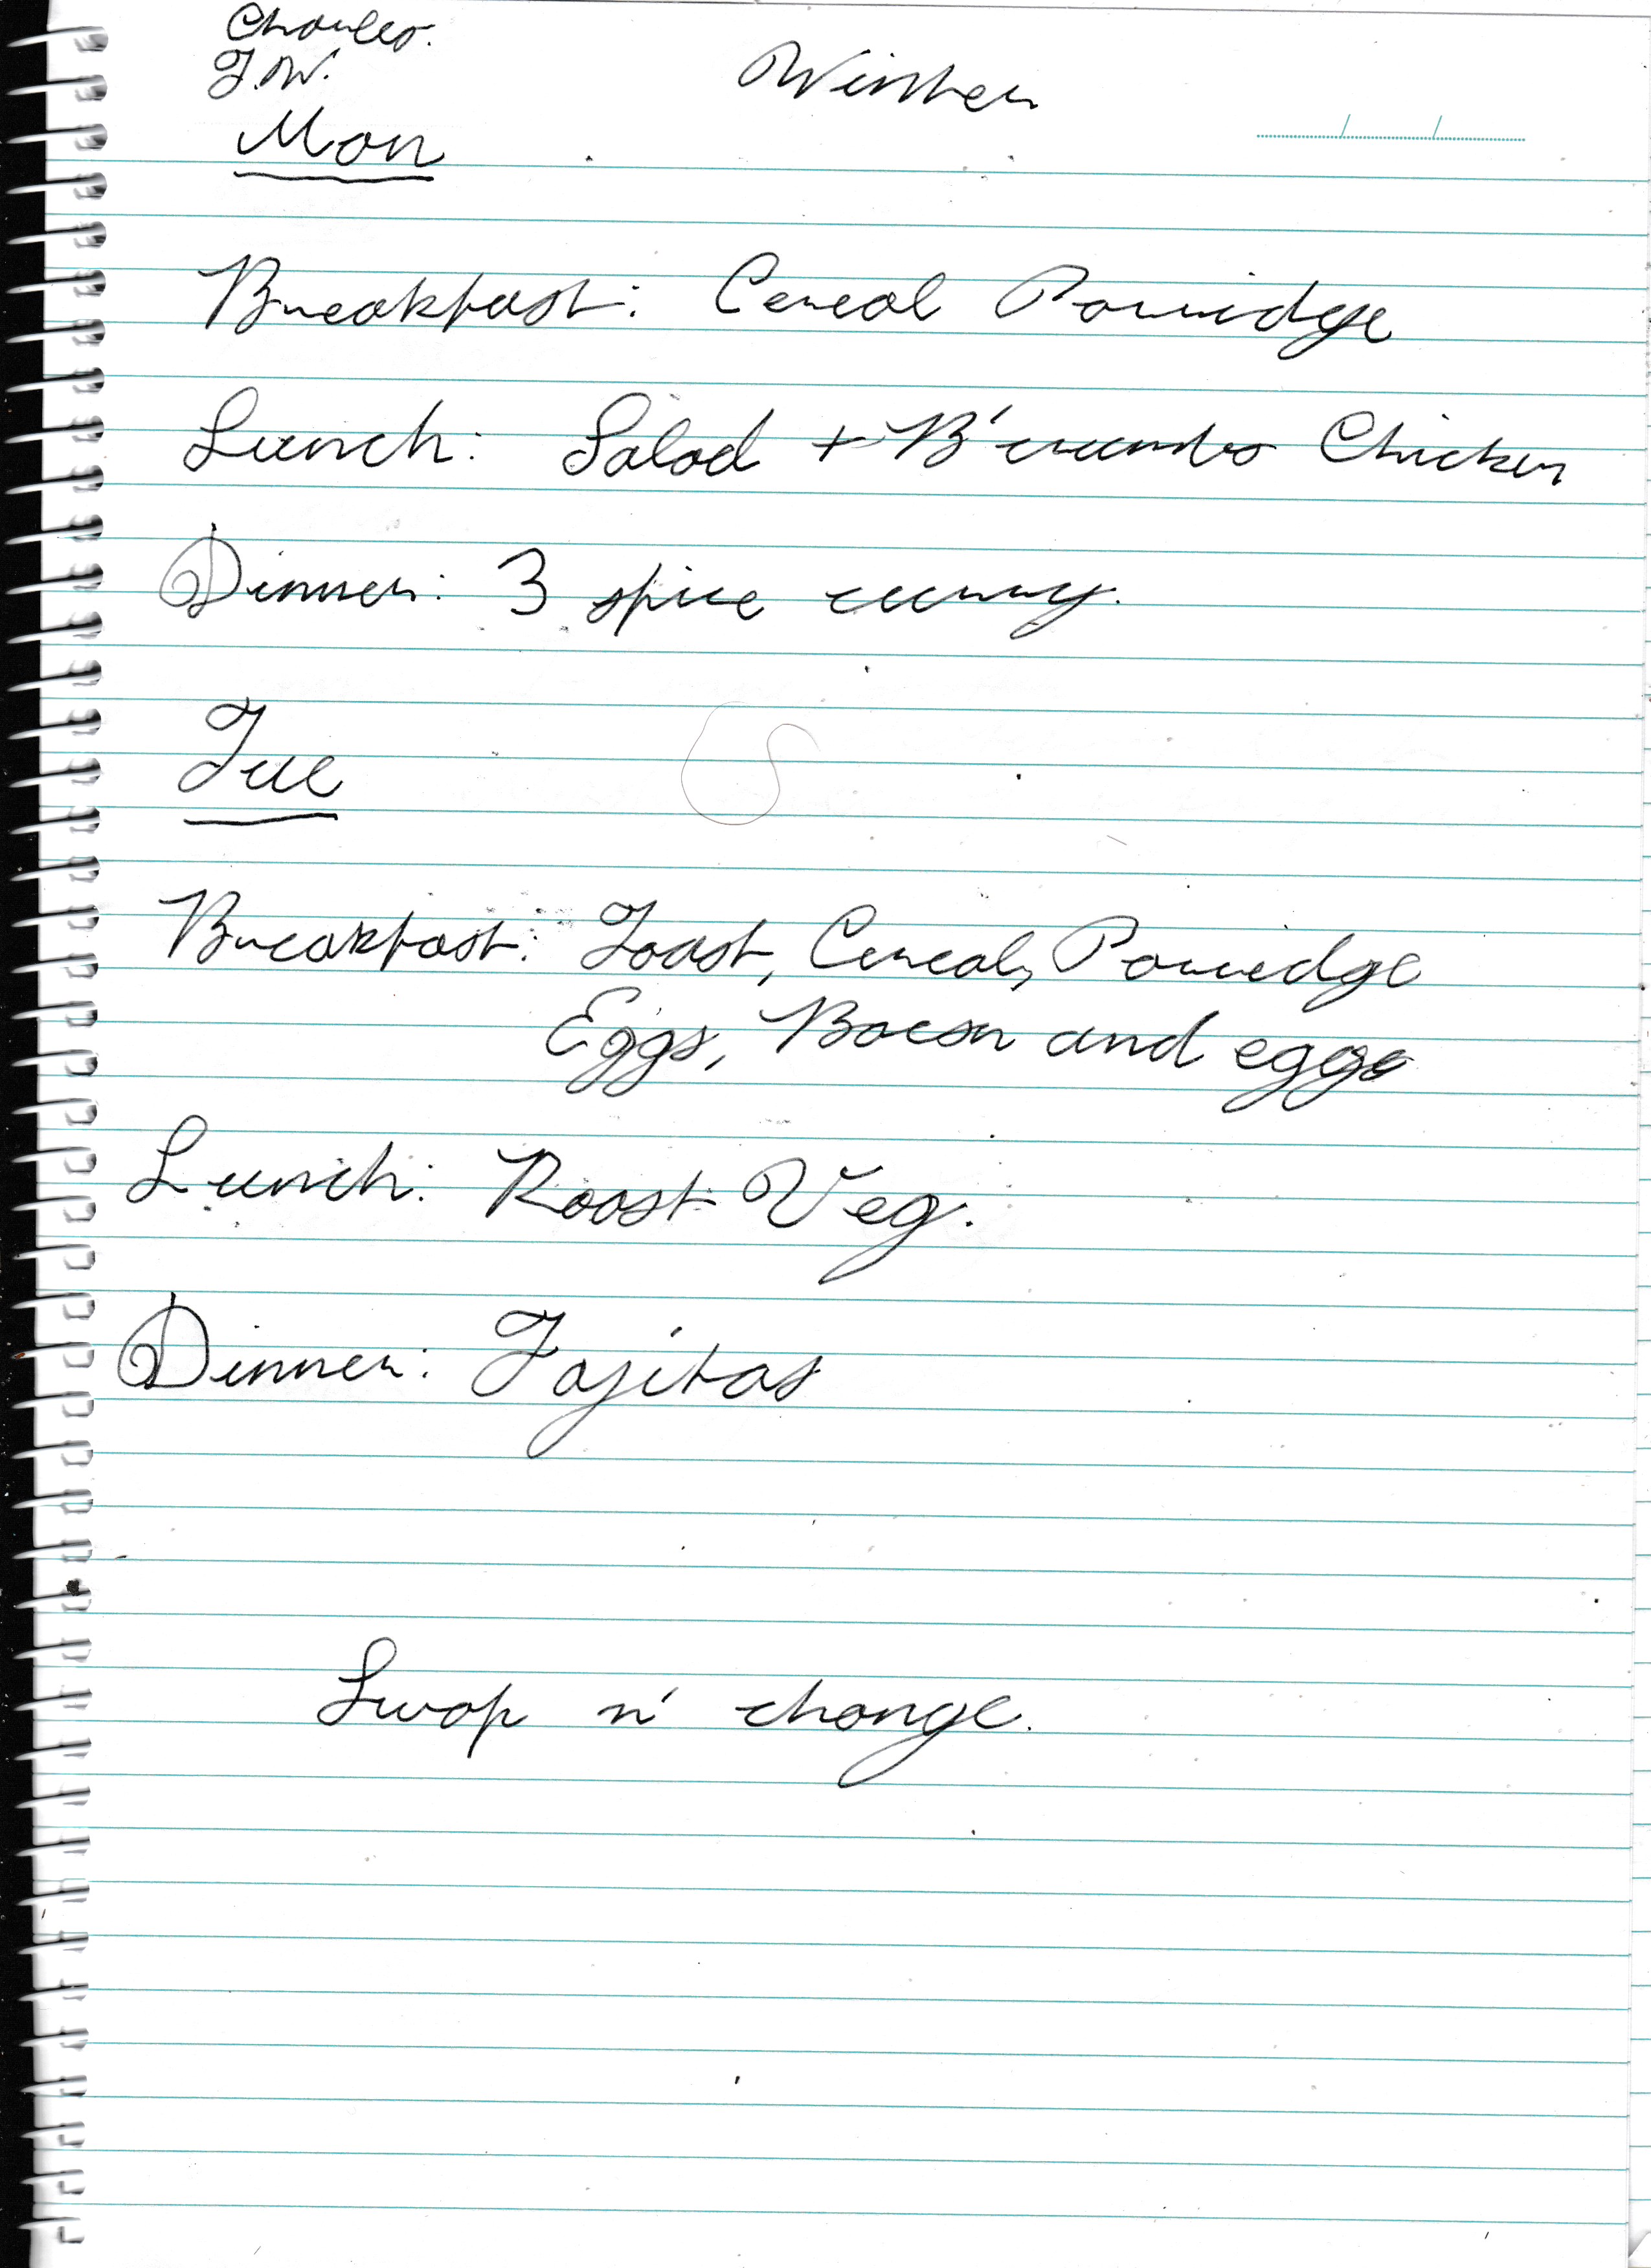 Charles.
J.W.
Winter
Mon
Breakfast: Cereal Porridge
Lunch: Salad + B'crumbs Chicken
Dinner: 3 spice curry.
Tue
Breakfast: Toast, Cereal, Porridge
Eggs, Bacon and eggs
Lunch: Roast Veg.
Dinner: Fajitas
Swap n' change.